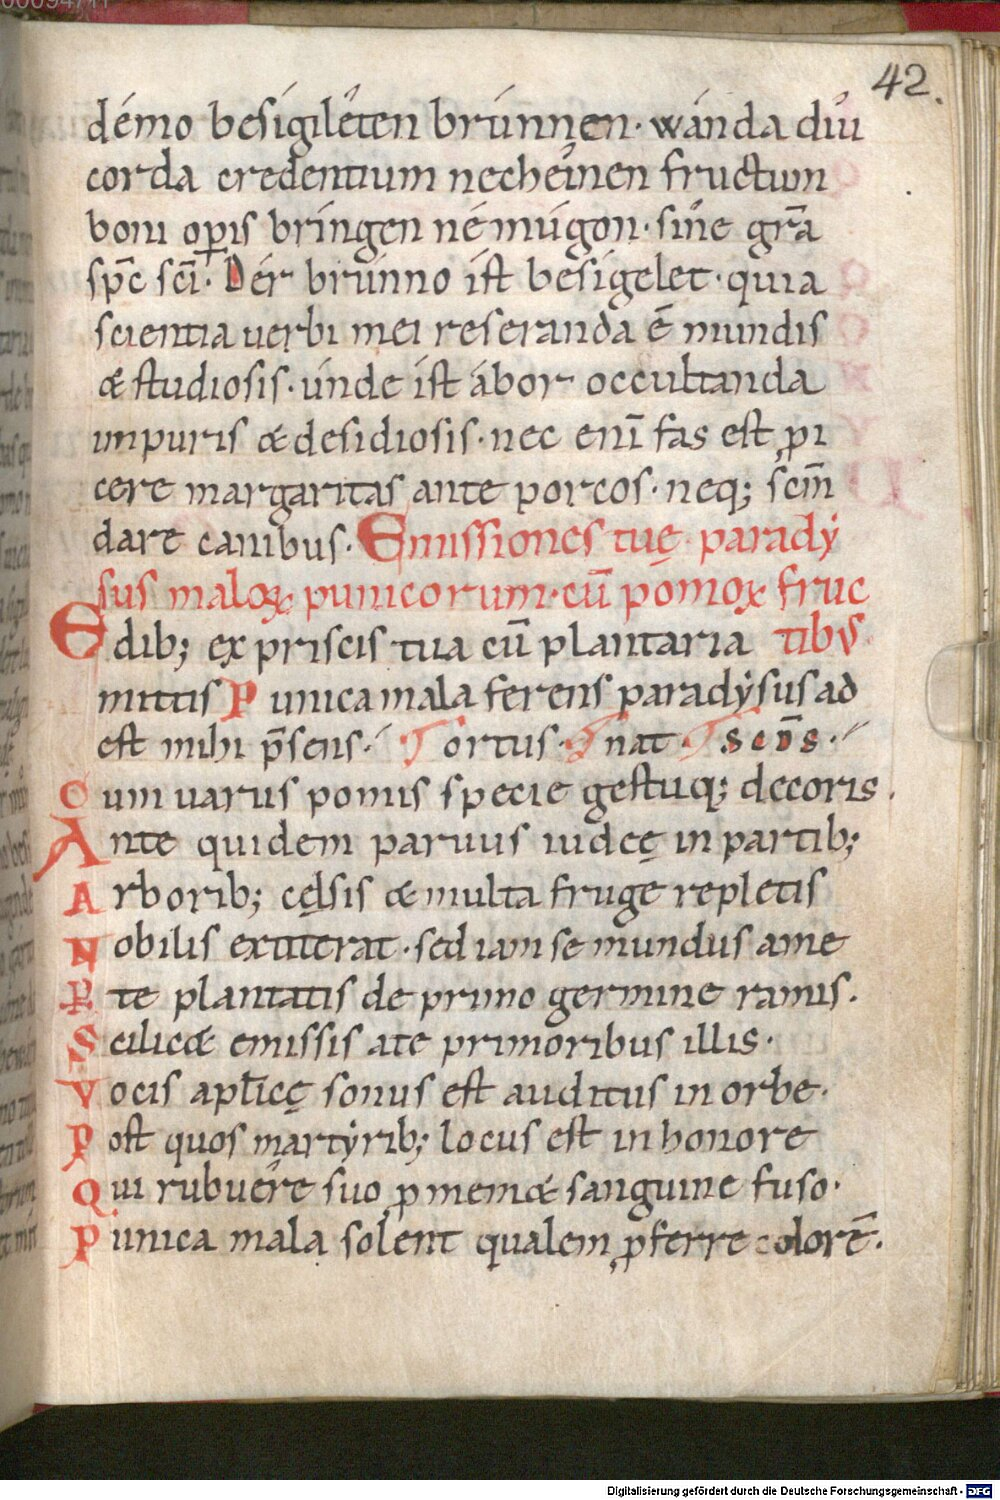 42.
démo besígilêten brúnnen· wánda díu
corda credentium necheînen fructum
boni opis bríngen né múgon· síne gr̄a
sp̄c sc̄i· Dér brúnno íst besígelet· quia
scientia uerbi mei reseranda ē mundis
& studiosis· únde íst ábor occultanda
inpuris & desidiosis· nec enī fas est ꝓi
cere margaritas ante porcos· neq; sc̄m
dare canibus· Emissiones tuę paradẏ
sus maloꝝ punicorum· cū pomoꝝ fruc
tibus
Edib; ex priscis tua cū plantaria
mittis Punica mala ferens paradẏsus ad
est mihi p̄sens· Tortus· T nat· T scīs·
Cum uariis pomis specie gestuq; decoris·
Ante quidem paruus iudeę in partib;
Arborib; cęlsis & multa fruge repletis
Nobilis extiterat· sed iam se mundus a me
Re te plantatis de primo germine ramis·
Scilic& emissis a te primoribus illis·
Vocis apl̄icę sonus est auditus in orbe·
Post quos martẏrib; locus est in honore
Qui rubuêre suo ꝓ me nem& sanguine fuso·
Punica mala solent qualem ꝓferre colorē·
Digitalisierung gefördert durch die Deutsche Forschungsgemeinschaft - DFG